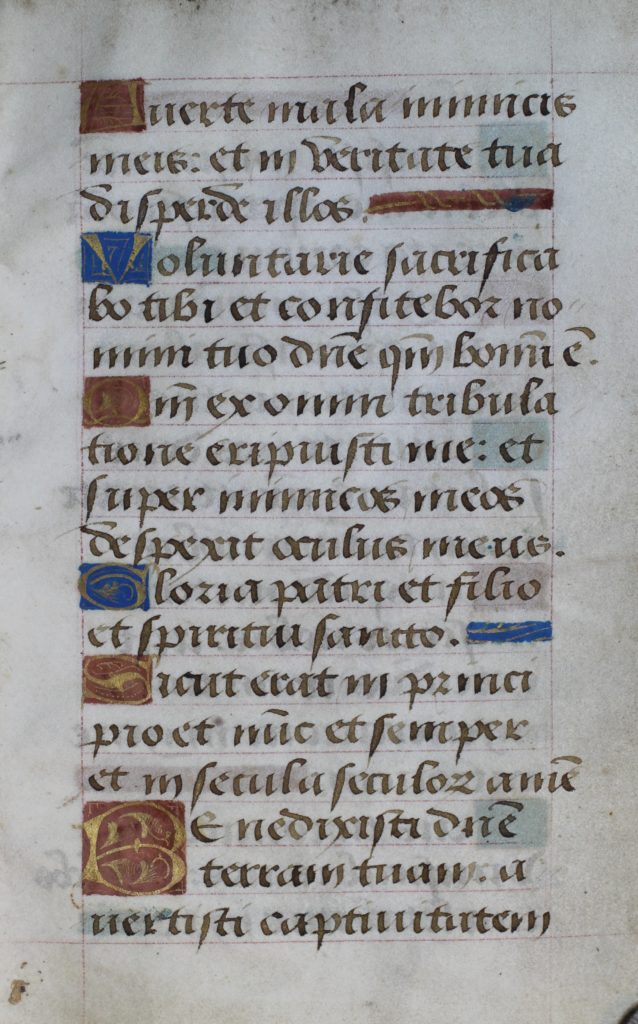 Auerte mala inimicis
meis: et in veritate tua
disperde illos.
Voluntarie sacrifica
bo tibi et confitebor no
mini tuo dñe qm̃ bonũ ẽ.
Qm̃ ex omni tribula
tione eripuisti me: et
super inimicos meos
despexit oculus meus.
Gloria patri et filio
et spiritui sancto.
Sicut erat in princi
pio et nũc et semper
et in secula seculoꝝ amẽ
BEnedixisti dñe
terram tuam. a
uertisti captiuitatem